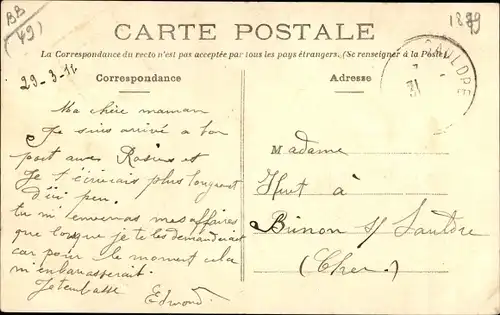 BB
49)
1879
CARTE POSTALE
La Correspondance du recto n'est pas acceptée par tous les pays étrangers. (Se renseigner à la Poste).
SAULDRE
31
29-3-11
Correspondance
Ma chère maman
Je suis arrivé a bon
port avec Rosius et
Je t'écrirais plus longuement
d'ici peu.
tu mi enverras mes affaires
que lorsque je te les demanderait
car pour le moment cela
m'enbarasserait.
Je t'embrasse
Edmond.
Adresse
Madame
Huet à
Brinon s/ Sauldre
(Cher.)